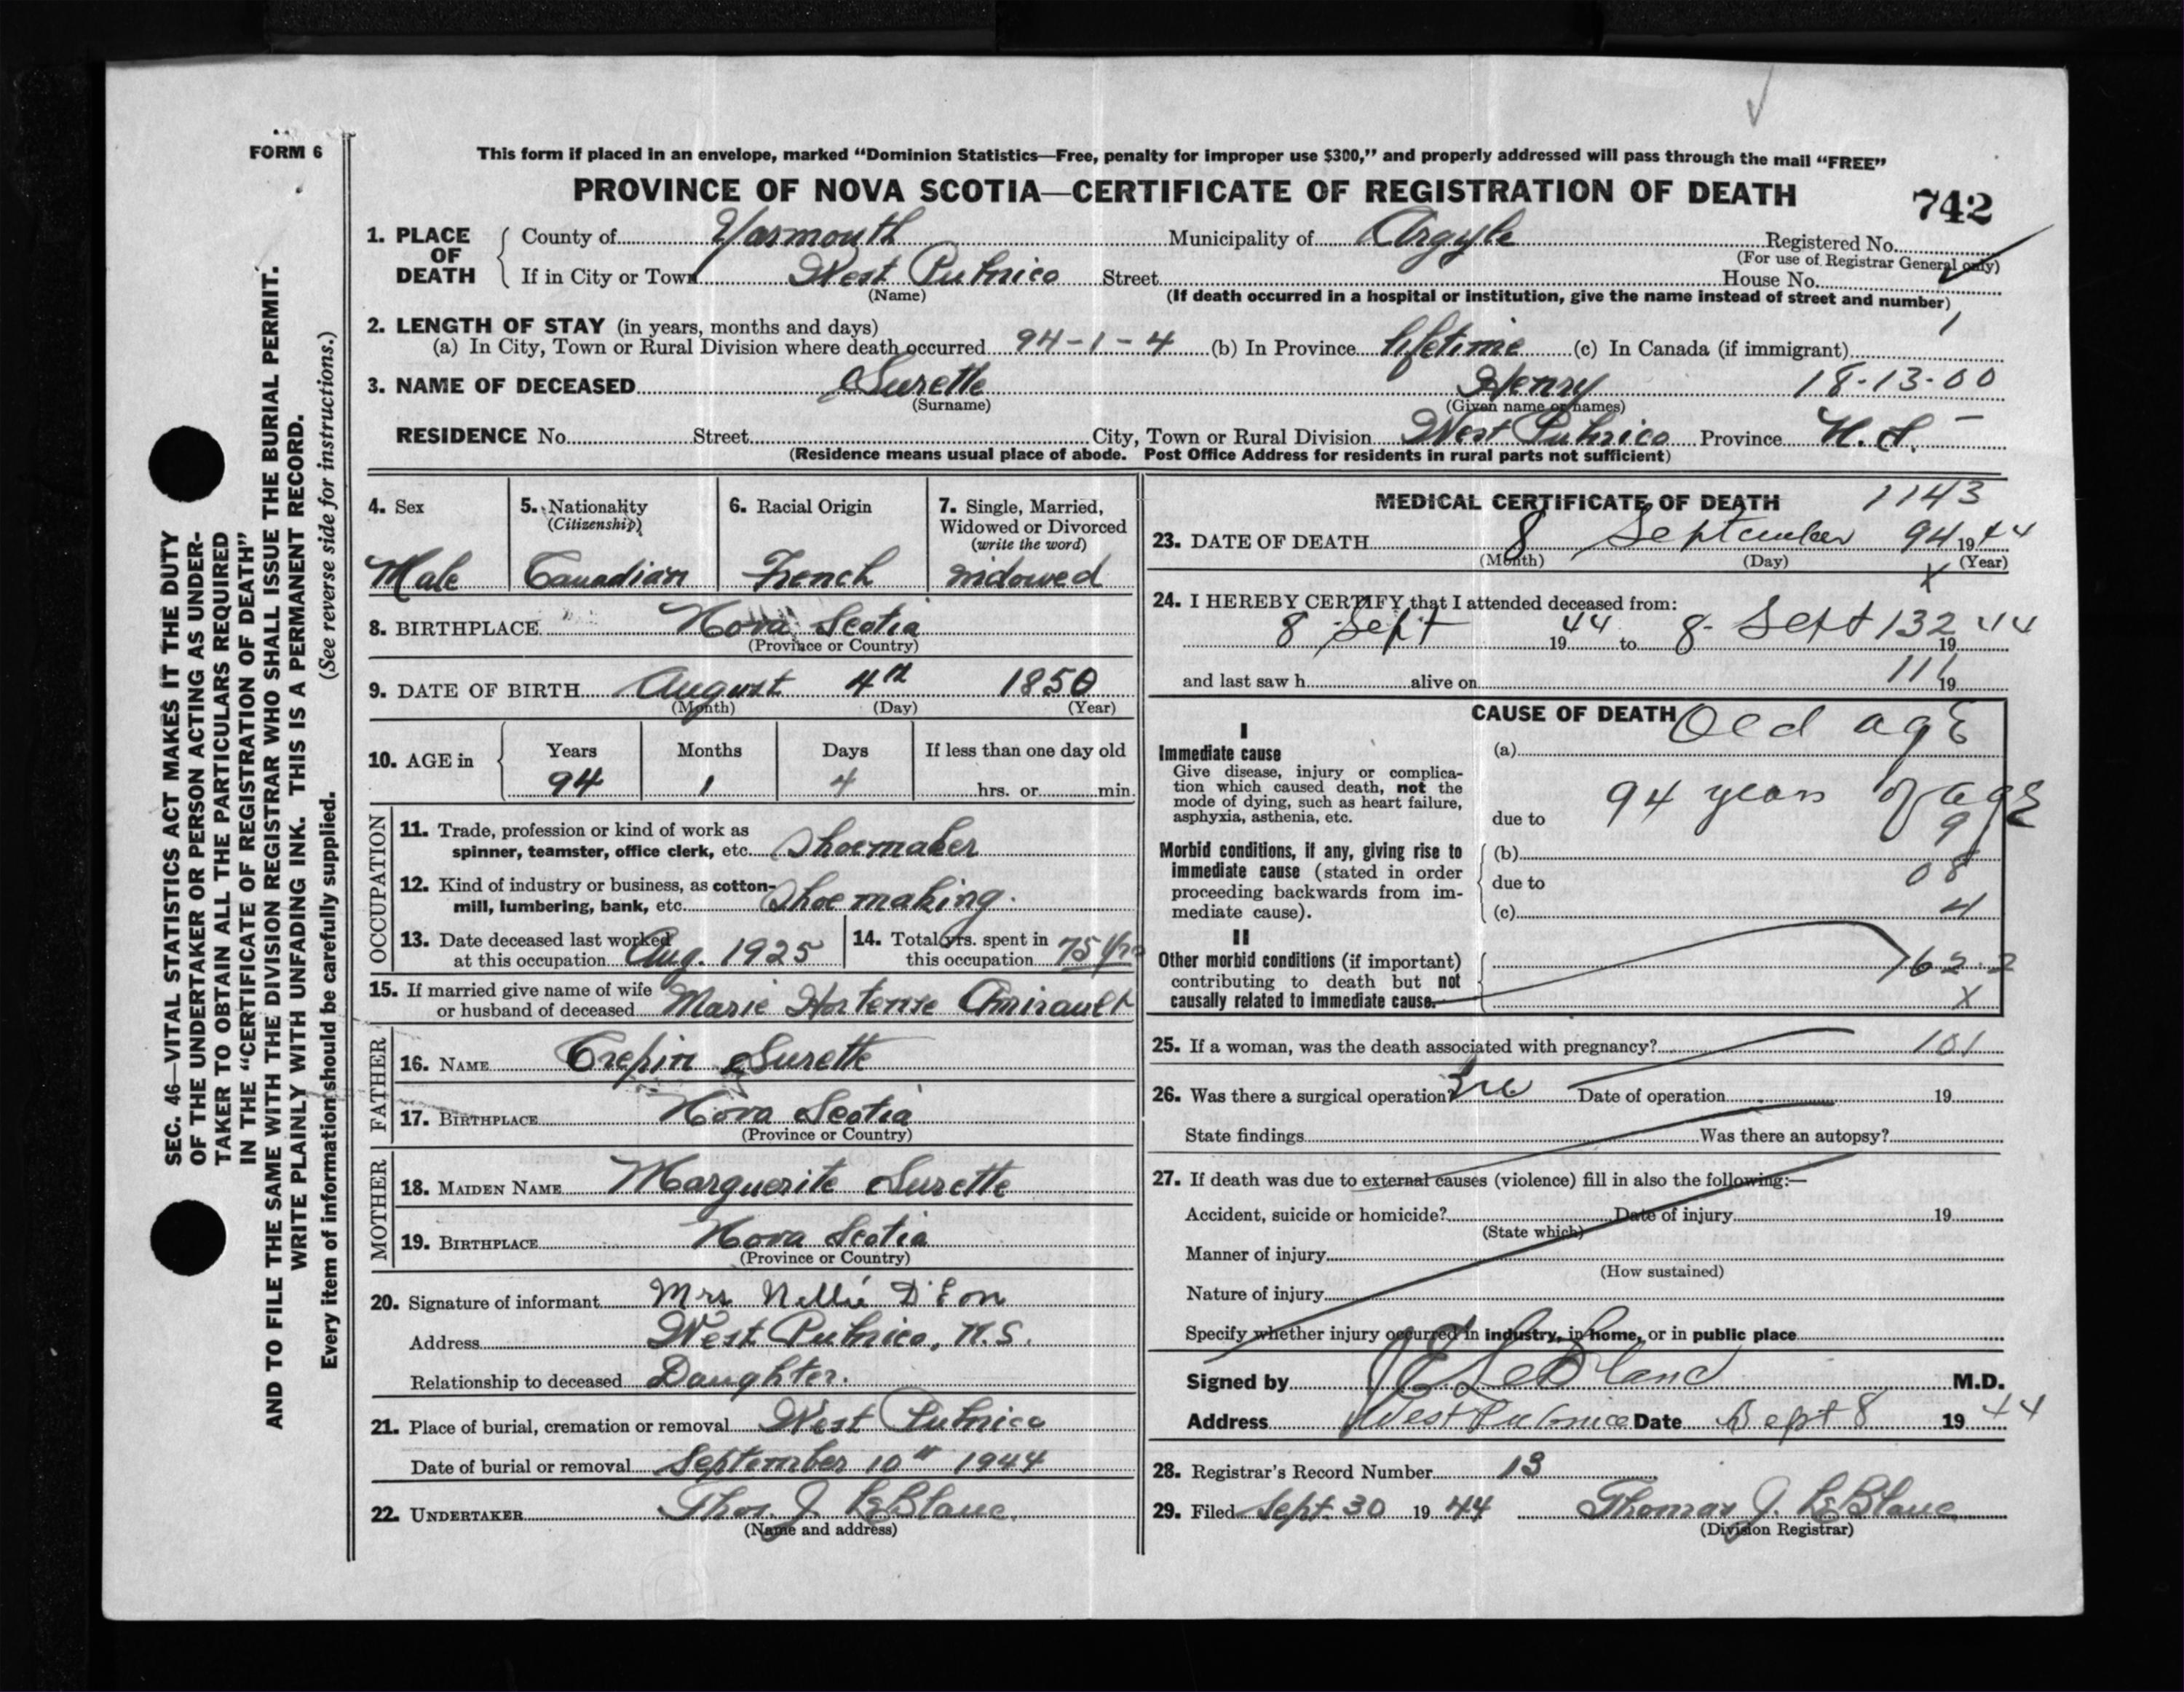 FORM 6
This form if placed in an envelope, marked “Dominion Statistics—Free, penalty for improper use $300,” and properly addressed will pass through the mail “FREE”
PROVINCE OF NOVA SCOTIA—CERTIFICATE OF REGISTRATION OF DEATH
742
1. PLACE OF DEATH
County of Yarmouth Municipality of Argyle Registered No.
(For use of Registrar General only)
If in City or Town West Pubnico Street House No.
(Name) (If death occurred in a hospital or institution, give the name instead of street and number)
2. LENGTH OF STAY (in years, months and days) 1
(a) In City, Town or Rural Division where death occurred 94-1-4 (b) In Province lifetime (c) In Canada (if immigrant)
3. NAME OF DECEASED Surette Henry 18-13-00
(Surname) (Given name or names)
RESIDENCE No. Street City, Town or Rural Division West Pubnico Province N. S.
(Residence means usual place of abode. Post Office Address for residents in rural parts not sufficient)
4. Sex
Male
5. Nationality
(Citizenship)
Canadian
6. Racial Origin
French
7. Single, Married,
Widowed or Divorced
(write the word)
widowed
8. BIRTHPLACE Nova Scotia
(Province or Country)
9. DATE OF BIRTH August 4th 1850
(Month) (Day) (Year)
10. AGE in
Years Months Days If less than one day old
94 1 4 hrs. or min.
OCCUPATION
11. Trade, profession or kind of work as
spinner, teamster, office clerk, etc. Shoemaker
12. Kind of industry or business, as cotton-
mill, lumbering, bank, etc. Shoe making.
13. Date deceased last worked
at this occupation Aug. 1925
14. Total yrs. spent in
this occupation 75 yrs
15. If married give name of wife
or husband of deceased Marie Hortense Amirault
FATHER
16. NAME Crepin Surette
17. BIRTHPLACE Nova Scotia
(Province or Country)
MOTHER
18. MAIDEN NAME Marguerite Surette
19. BIRTHPLACE Nova Scotia
(Province or Country)
20. Signature of informant Mrs Nellie D'Eon
Address West Pubnico, N.S.
Relationship to deceased Daughter.
21. Place of burial, cremation or removal West Pubnico
Date of burial or removal September 10th 1944
22. UNDERTAKER Thos. J. LeBlanc.
(Name and address)
MEDICAL CERTIFICATE OF DEATH 1143
23. DATE OF DEATH 8 September 94 1944
(Month) (Day) (Year)
X
24. I HEREBY CERTIFY that I attended deceased from:
8 Sept 1944 to 8 Sept 132 1944
and last saw h alive on 19
CAUSE OF DEATH
I
Immediate cause
Give disease, injury or complica-
tion which caused death, not the
mode of dying, such as heart failure,
asphyxia, asthenia, etc.
(a) Old age
due to 94 years of age
9
Morbid conditions, if any, giving rise to
immediate cause (stated in order
proceeding backwards from im-
mediate cause).
(b)
due to 08
(c) 4
II
Other morbid conditions (if important)
contributing to death but not
causally related to immediate cause.
162.2
X
25. If a woman, was the death associated with pregnancy? 101
26. Was there a surgical operation? no Date of operation 19
State findings Was there an autopsy?
27. If death was due to external causes (violence) fill in also the following:—
Accident, suicide or homicide? Date of injury 19
(State which)
Manner of injury
(How sustained)
Nature of injury
Specify whether injury occurred in industry, in home, or in public place
Signed by J E LeBlanc M.D.
Address West Pubnico Date Sept 8 1944
28. Registrar's Record Number 13
29. Filed Sept. 30 1944 Thomas J. LeBlanc
(Division Registrar)
SEC. 46—VITAL STATISTICS ACT MAKES IT THE DUTY
OF THE UNDERTAKER OR PERSON ACTING AS UNDER-
TAKER TO OBTAIN ALL THE PARTICULARS REQUIRED
IN THE “CERTIFICATE OF REGISTRATION OF DEATH”
AND TO FILE THE SAME WITH THE DIVISION REGISTRAR WHO SHALL ISSUE THE BURIAL PERMIT.
WRITE PLAINLY WITH UNFADING INK. THIS IS A PERMANENT RECORD.
Every item of information should be carefully supplied. (See reverse side for instructions.)